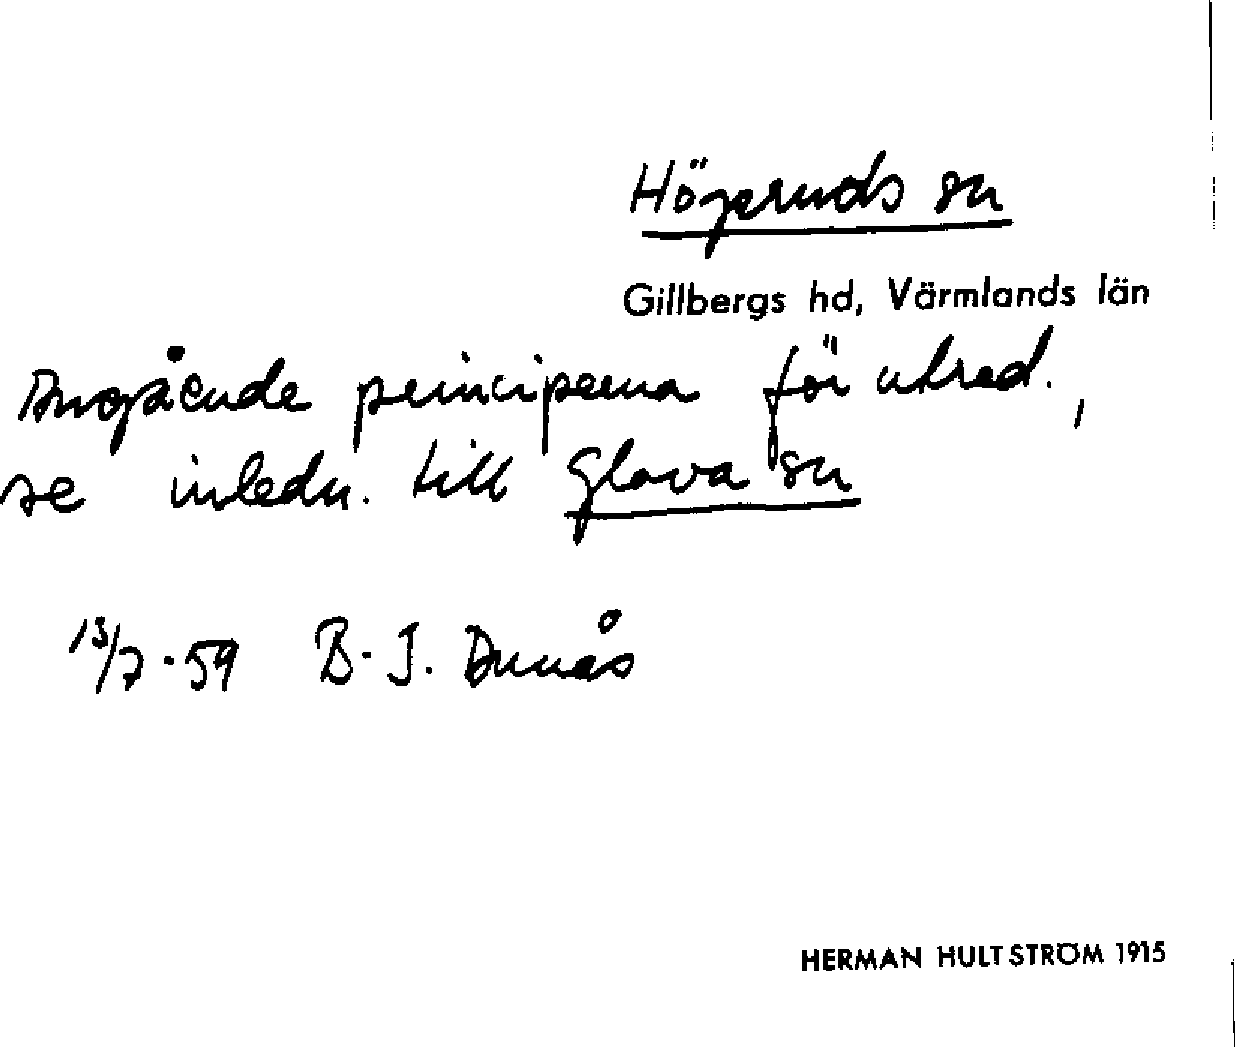 Högeruds sn
Gillbergs hd, Värmlands län
Angående principerna för utred.,
se inledn. till Glava sn
13/7-59 B-I. Dunås
HERMAN HULTSTRÖM 1915